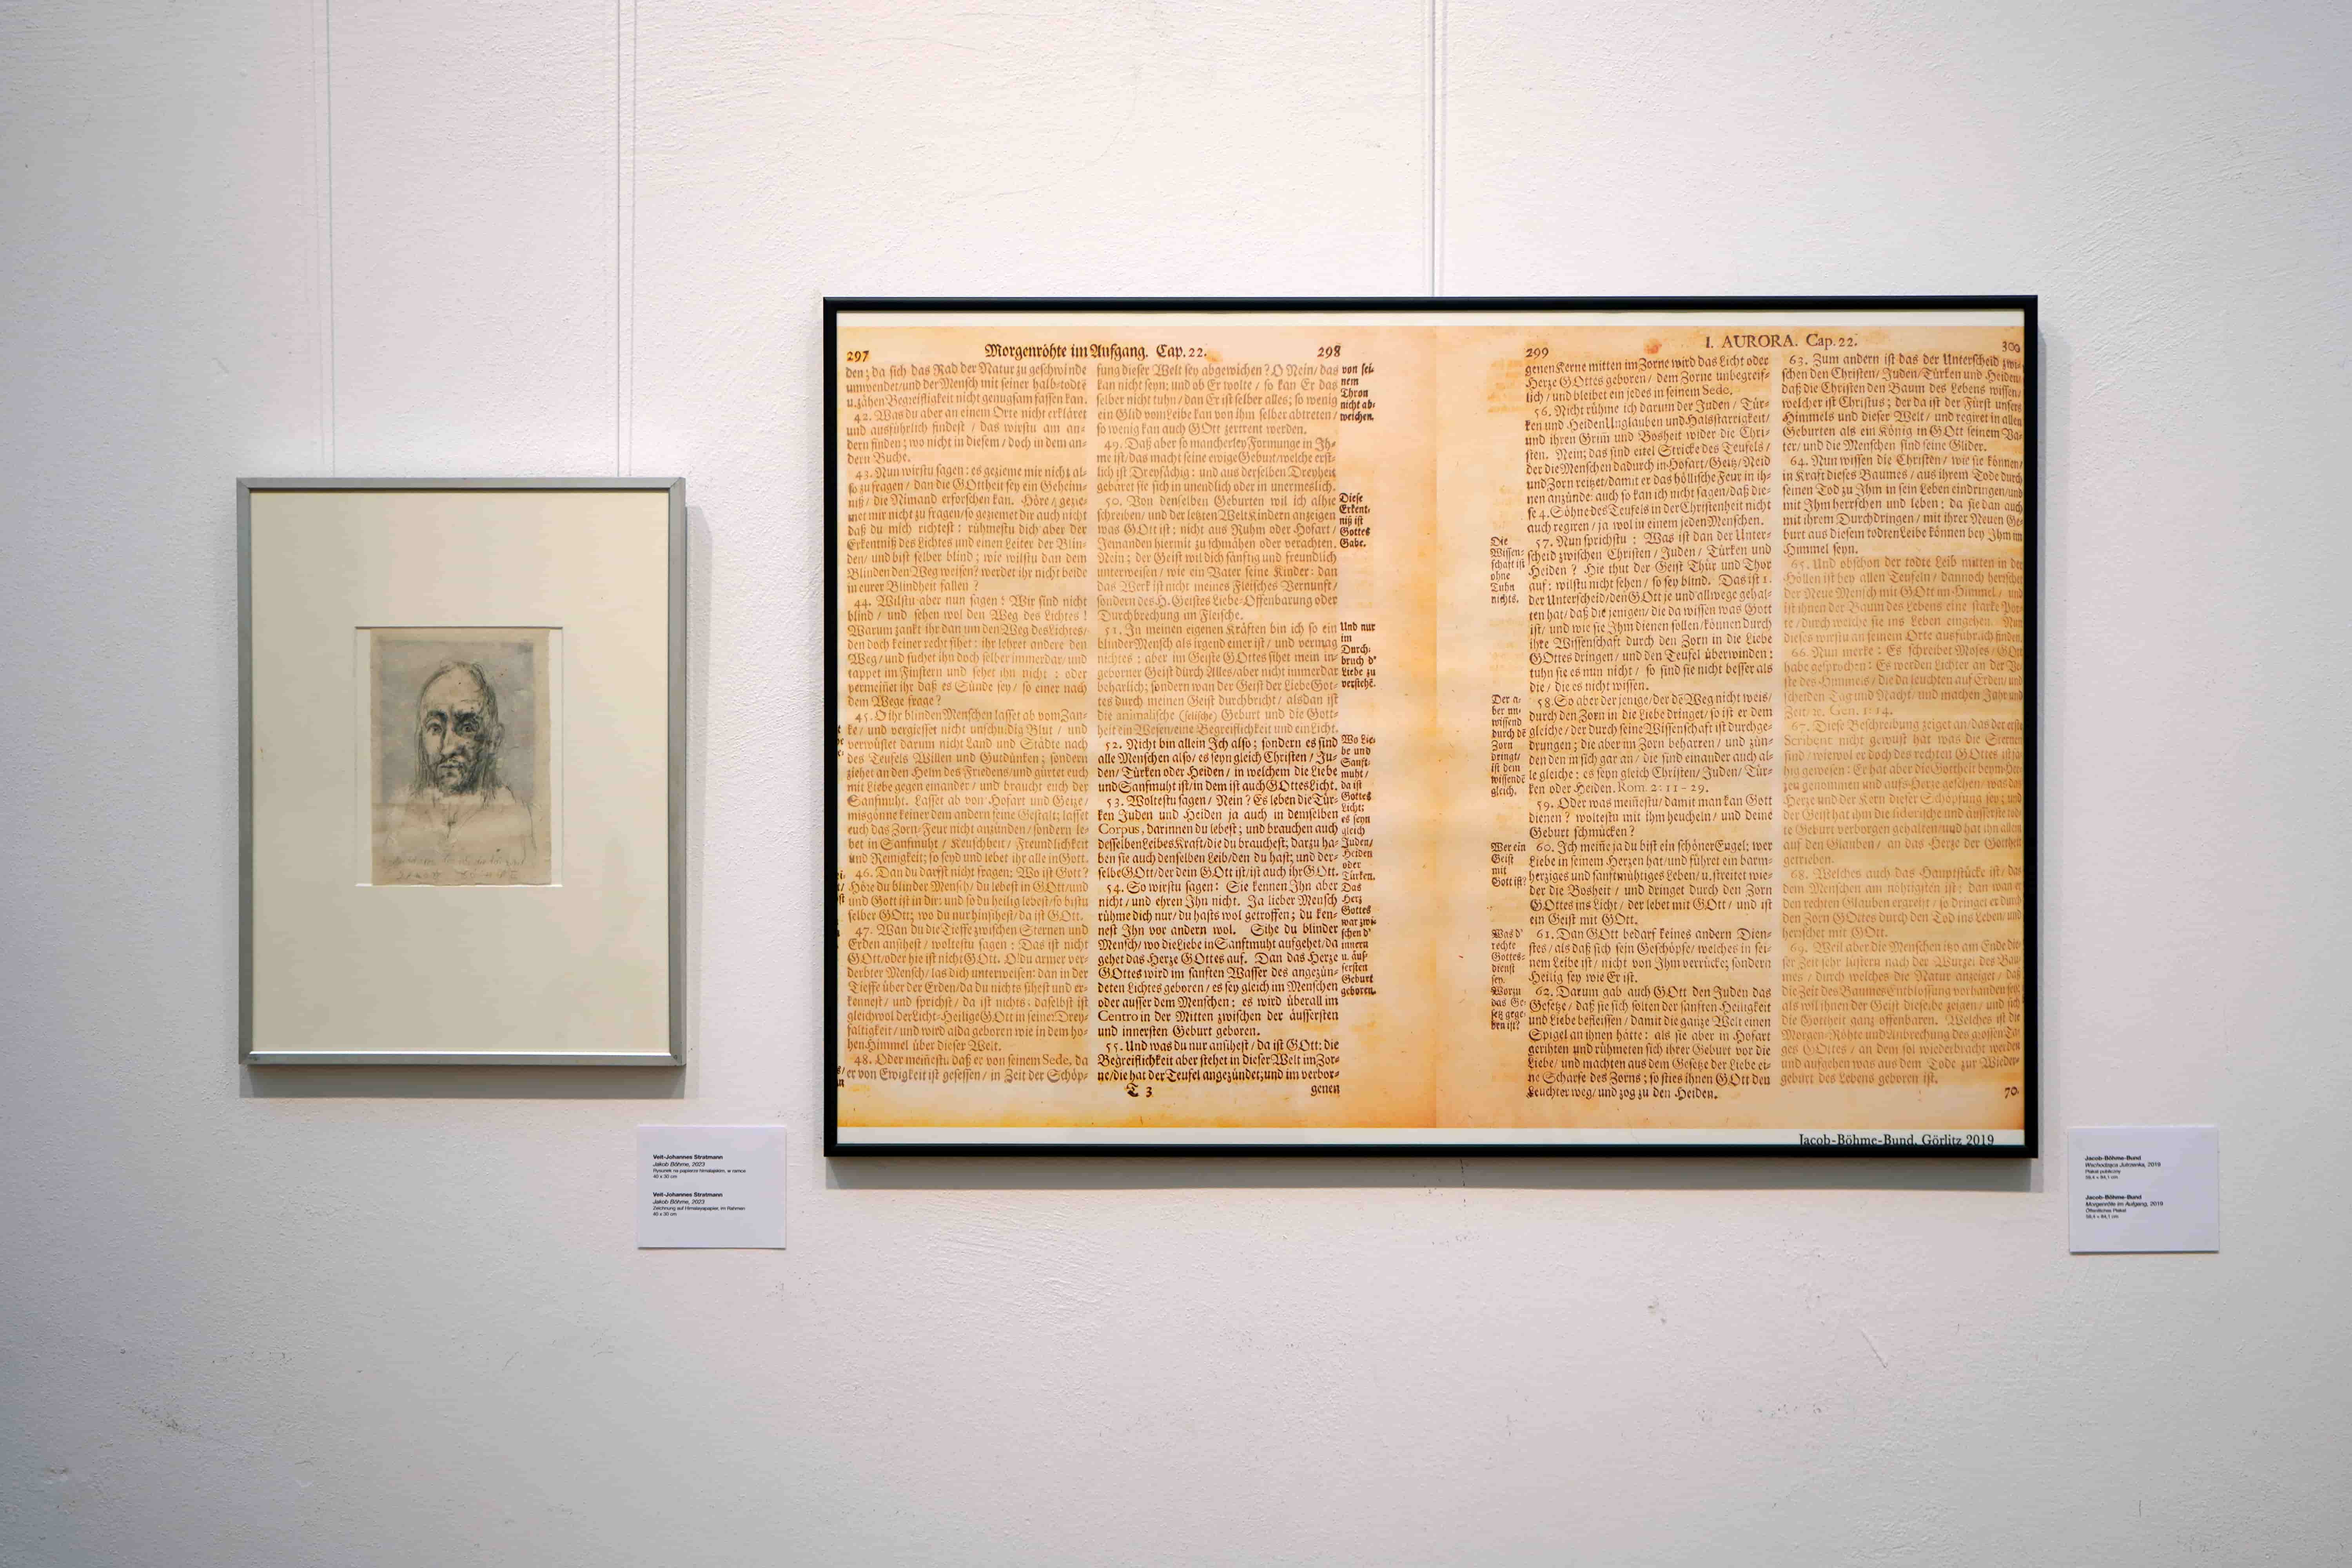 297
Morgenröhte im Aufgang. Cap. 22.
298
den; da sich das Rad der Natur zu geschwinde
umwendet/und der Mensch mit seiner halb-todtē
u.zähen Begreifligkeit nicht genugsam fassen kan.
42. Was du aber an einem Orte nicht erkläret
und ausführlich findest / das wirstu am an-
dern finden; wo nicht in diesem / doch in dem an-
dern Buche.
43. Nun wirstu sagen: es gezieme mir nicht al-
so zu fragen/ dan die GOttheit sey ein Geheim-
niß/ die Nimand erforschen kan. Höre/ gezie-
met mir nicht zu fragen/so geziemet dir auch nicht
daß du mich richtest: rühmestu dich aber der
Erkentniß des Lichtes und einen Leiter der Blin-
den/ und bist selber blind; wie wilstu dan dem
Blinden den Weg weisen? werdet ihr nicht beide
in eurer Blindheit fallen?
44. Wilstu aber nun sagen: Wir sind nicht
blind / und sehen wol den Weg des Lichtes!
Warum zankt ihr dan um den Weg des Lichtes/
den doch keiner recht sihet: ihr lehret andere den
Weg/ und suchet ihn doch selber immerdar/ und
tappet im Finstern und sehet ihn nicht: oder
vermeinet ihr daß es Sünde sey/ so einer nach
dem Wege frage?
45. O ihr blinden Menschen lasset ab vom Zan-
ke/ und vergiesset nicht unschuldig Blut / und
verwüstet darum nicht Land und Städte nach
des Teufels Willen und Gutdünken; sondern
ziehet an den Helm des Friedens/und gürtet euch
mit Liebe gegen einander/ und braucht euch der
Sanfmuht. Lasset ab von Hofart und Geize/
misgönne keiner dem andern seine Gestalt; lasset
euch das Zorn-Feur nicht anzünden/sondern le-
bet in Sanfmuht / Keuschheit / Freundlichkeit
und Reinigkeit; so seyd und lebet ihr alle in Gott.
46. Dan du darfst nicht fragen; Wo ist Gott?
Höre du blinder Mensch/ du lebest in GOtt/und
und Gott ist in dir: und so du heilig lebest/so bistu
selber GOtt; wo du nur hinsihest/da ist GOtt.
47. Wan du die Tieffe zwischen Sternen und
Erden ansihest / woltestu sagen: Das ist nicht
GOtt/oder hie ist nicht GOtt. O du armer ver-
derbter Mensch/ las dich unterweisen: dan in der
Tieffe über der Erden/da du nichts sihest und er-
kennest/ und sprichst/ da ist nichts; daselbst ist
gleichwol der Licht-Heilige GOtt in seiner Drey-
faltigkeit/ und wird alda geboren wie in dem ho-
hen Himmel über dieser Welt.
48. Oder meinestu daß er von seinem Sede, da
er von Ewigkeit ist gesessen/ in Zeit der Schöp-
fung dieser Welt sey abgewichen? O Nein/ das
kan nicht seyn; und ob Er wolte / so kan Er das
selber nicht tuhn/ dan Er ist selber alles; so wenig
ein Glid vom Leibe kan von ihm selber abtreten/
so wenig kan auch GOtt zertrent werden.
49. Daß aber so mancherley Formunge in Jh-
me ist/das macht seine ewige Geburt/welche erst-
lich ist Dreyfächig: und aus derselben Dreyheit
gebäret sie sich in unendlich oder in unermeslich.
50. Von denselben Geburten wil ich alhie
schreiben/ und der letzten Welt Kindern anzeigen
was GOtt ist: nicht aus Ruhm oder Hofart/
Jemanden hiermit zu schmähen oder verachten.
Nein; der Geist wil dich sänftig und freundlich
unterweisen/ wie ein Vater seine Kinder: dan
das Werk ist nicht meines Fleisches Vernunft/
sondern des H. Geistes Liebe-Offenbarung oder
Durchbrechung im Fleische.
51. Jn meinen eigenen Kräften bin ich so ein
blinder Mensch als irgend einer ist/ und vermag
nichtes: aber im Geiste GOttes sihet mein in-
geborner Geist durch Alles/aber nicht immerdar
beharlich; sondern wan der Geist der Liebe Got-
tes durch meinen Geist durchbricht/ alsdan ist
die animalische (selische) Geburt und die Gott-
heit ein Wesen/eine Begreiflichkeit und ein Licht.
52. Nicht bin allein Jch also; sondern es sind
alle Menschen also/ es seyn gleich Christen/ Ju-
den/ Türken oder Heiden/ in welchem die Liebe
und Sanfmuht ist/in dem ist auch GOttes Licht.
53. Woltestu sagen/ Nein? Es leben die Tür-
ken Juden und Heiden ja auch in demselben
Corpus, darinnen du lebest; und brauchen auch
desselben Leibes Kraft/die du brauchest; darzu ha-
ben sie auch denselben Leib/den du hast; und der-
selbe GOtt/der dein GOtt ist/ist auch ihr GOtt.
54. So wirstu sagen: Sie kennen Jhn aber
nicht/ und ehren Jhn nicht. Ja lieber Mensch
rühme dich nur/ du hasts wol getroffen; du ken-
nest Jhn vor andern wol. Sihe du blinder
Mensch/ wo die Liebe in Sanftmuht aufgehet/da
gehet das Herze GOttes auf. Dan das Herze
GOttes wird im sanften Wasser des angezün-
deten Lichtes geboren/ es sey gleich im Menschen
oder ausser dem Menschen; es wird überall im
Centro in der Mitten zwischen der äussersten
und innersten Geburt geboren.
55. Und was du nur ansihest/ da ist GOtt: die
Begreiflichkeit aber stehet in dieser Welt im Zor-
ne/die hat der Teufel angezündet;und im verbor-
T 3
genen
von sei-
nem
Thron
nicht ab-
weichen.
Diese
Erkent-
niß ist
Gottes
Gabe.
Und nur
im
Durch-
bruch d'
Liebe zu
verstehē.
Wo Lie-
be und
Sanft-
muht/
da ist
Gottes
Licht;
es seyn
gleich
Juden/
Heiden
oder
Türken.
Das
Herz
Gottes
war zwi-
schen d'
innern
u. äuß-
sersten
Geburt
geboren.
299
I. AURORA. Cap. 22.
300
genen Kerne mitten im Zorne wird das Licht oder
Herze GOttes geboren/ dem Zorne unbegreif-
lich/ und bleibet ein jedes in seinem Sede.
56. Nicht rühme ich darum der Juden/ Tür-
ken und Heiden Unglauben und Halsstarrigkeit/
und ihren Grim und Bosheit wider die Chri-
sten. Nein; das sind eitel Stricke des Teufels/
der die Menschen dadurch in Hofart/Geitz/Neid
und Zorn reitzet/damit er das höllische Feur in ih-
nen anzünde: auch so kan ich nicht sagen/daß die-
se 4. Söhne des Teufels in der Christenheit nicht
auch regiren/ ja wol in einem jeden Menschen.
57. Nun sprichstu: Was ist dan der Unter-
scheid zwischen Christen/ Juden/ Türken und
Heiden? Hie thut der Geist Thür und Thor
auf: wilstu nicht sehen/ so sey blind. Das ist 1.
der Unterscheid/den GOtt je und allwege gehal-
ten hat/ daß die jenigen/ die da wissen was Gott
ist/ und wie sie Jhm dienen sollen/können durch
ihre Wissenschaft durch den Zorn in die Liebe
GOttes dringen/ und den Teufel überwinden:
tuhn sie es nun nicht/ so sind sie nicht besser als
die/ die es nicht wissen.
58. So aber der jenige/der dē Weg nicht weis/
durch den Zorn in die Liebe dringet/so ist er dem
gleiche/ der durch seine Wissenschaft ist durchge-
drungen; die aber im Zorn beharren/ und zün-
den den in sich gar an/ die sind einander auch al-
le gleiche: es seyn gleich Christen/ Juden/ Tür-
ken oder Heiden. Rom. 2: 11 - 29.
59. Oder was meinestu/ damit man kan Gott
dienen? woltestu mit ihm heucheln/ und deine
Geburt schmücken?
60. Jch meine ja du bist ein schöner Engel; wer
Liebe in seinem Herzen hat/und führet ein barm-
herziges und sanftmühtiges Leben/ u.streitet wie-
der die Bosheit / und dringet durch den Zorn
GOttes ins Licht/ der lebet mit GOtt/ und ist
ein Geist mit GOtt.
61. Dan GOtt bedarf keines andern Dien-
stes/als daß sich sein Geschöpfe/ welches in sei-
nem Leibe ist/ nicht von Jhm verrücke; sondern
Heilig sey wie Er ist.
62. Darum gab auch GOtt den Juden das
Gesetze/ daß sie sich solten der sanften Heiligkeit
und Liebe befleissen/ damit die ganze Welt einen
Spigel an ihnen hätte: als sie aber in Hofart
gerihten und rühmeten sich ihrer Geburt vor die
Liebe/ und machten aus dem Gesetze der Liebe ei-
ne Schärfe des Zorns; so sties ihnen GOtt den
Leuchter weg/ und zog zu den Heiden.
Die
Wissen-
schaft ist
ohne
Tuhn
nichts.
Der a-
ber un-
wissend
durch dē
Zorn
dringt/
ist dem
wissendē
gleich.
Wer ein
Geist
mit
Gott ist?
Was d'
rechte
Gottes-
dienst
sey.
Worzu
das Ge-
setz gege-
ben ist?
63. Zum andern ist das der Unterscheid zwi-
schen den Christen/ Juden/ Türken und Heiden/
daß die Christen den Baum des Lebens wissen/
welcher ist Christus; der da ist der Fürst unsers
Himmels und dieser Welt/ und regiret in allen
Geburten als ein König in GOtt seinem Va-
ter/ und die Menschen sind seine Glider.
64. Nun wissen die Christen/ wie sie können/
in Kraft dieses Baumes/ aus ihrem Tode durch
seinen Tod zu Jhm in sein Leben eindringen/und
mit Jhm herrschen und leben; da sie dan auch
mit ihrem Durchdringen/ mit ihrer Neuen Ge-
burt aus diesem todten Leibe können bey Jhm im
Himmel seyn.
65. Und obschon der todte Leib mitten in der
Höllen ist bey allen Teufeln/ dannoch herrschet
der Neue Mensch mit GOtt im Himmel/ und
ist ihnen der Baum des Lebens eine starke Pfor-
te/ durch welche sie ins Leben eingehen. Nun
dieses wirstu an seinem Orte ausführlich finden.
66. Nun merke: Es schreibet Moses/ GOtt
habe gesprochen: Es werden Lichter an der Ve-
ste des Himmels/ die da leuchten auf Erden/ und
scheiden Tag und Nacht/ und machen Jahr und
Zeit/ etc. Gen. 1: 14.
67. Diese Beschreibung zeiget an/das der erste
Scribent nicht gewust hat was die Sternen
sind/ wiewol er doch des rechten GOttes ist fä-
hig gewesen: Er hat aber die Gottheit beym Her-
zen genommen und aufs Herze gesehen/ was das
Herze und der Kern dieser Schöpfung sey; und
der Geist hat ihm die siderische und äusserste tod-
te Geburt verborgen gehalten/und hat ihn allein
auf den Glauben/ an das Herze der Gottheit
getrieben.
68. Welches auch das Hauptstücke ist/ das
dem Menschen am nöhtigsten ist: dan wan er
den rechten Glauben ergreift/ so dringet er durch
den Zorn GOttes durch den Tod ins Leben/ und
herrschet mit GOtt.
69. Weil aber die Menschen itzo am Ende die-
ser Zeit sehr lüstern nach der Wurzel des Bau-
mes / durch welches die Natur anzeiget/ daß
die Zeit des Baumes Entblössung vorhanden sey;
als wil ihnen der Geist dieselbe zeigen/ und sich
die Gottheit ganz offenbaren. Welches ist die
Morgen-Röhte und Anbrechung des grossen Ta-
ges GOttes / an dem sol wiederbracht werden
und aufgehen was aus dem Tode zur Wieder-
geburt des Lebens geboren ist.
70.
Jacob-Böhme-Bund, Görlitz 2019
Veit-Johannes Stratmann
Jakob Böhme, 2023
Rysunek na papierze himalajskim, w ramce
40 x 30 cm
Veit-Johannes Stratmann
Jakob Böhme, 2023
Zeichnung auf Himalayapapier, im Rahmen
40 x 30 cm
Jacob-Böhme-Bund
Wschodząca Jutrzenka, 2019
Plakat publiczny
59,4 × 84,1 cm
Jacob-Böhme-Bund
Morgenröte im Aufgang, 2019
Öffentliches Plakat
59,4 × 84,1 cm